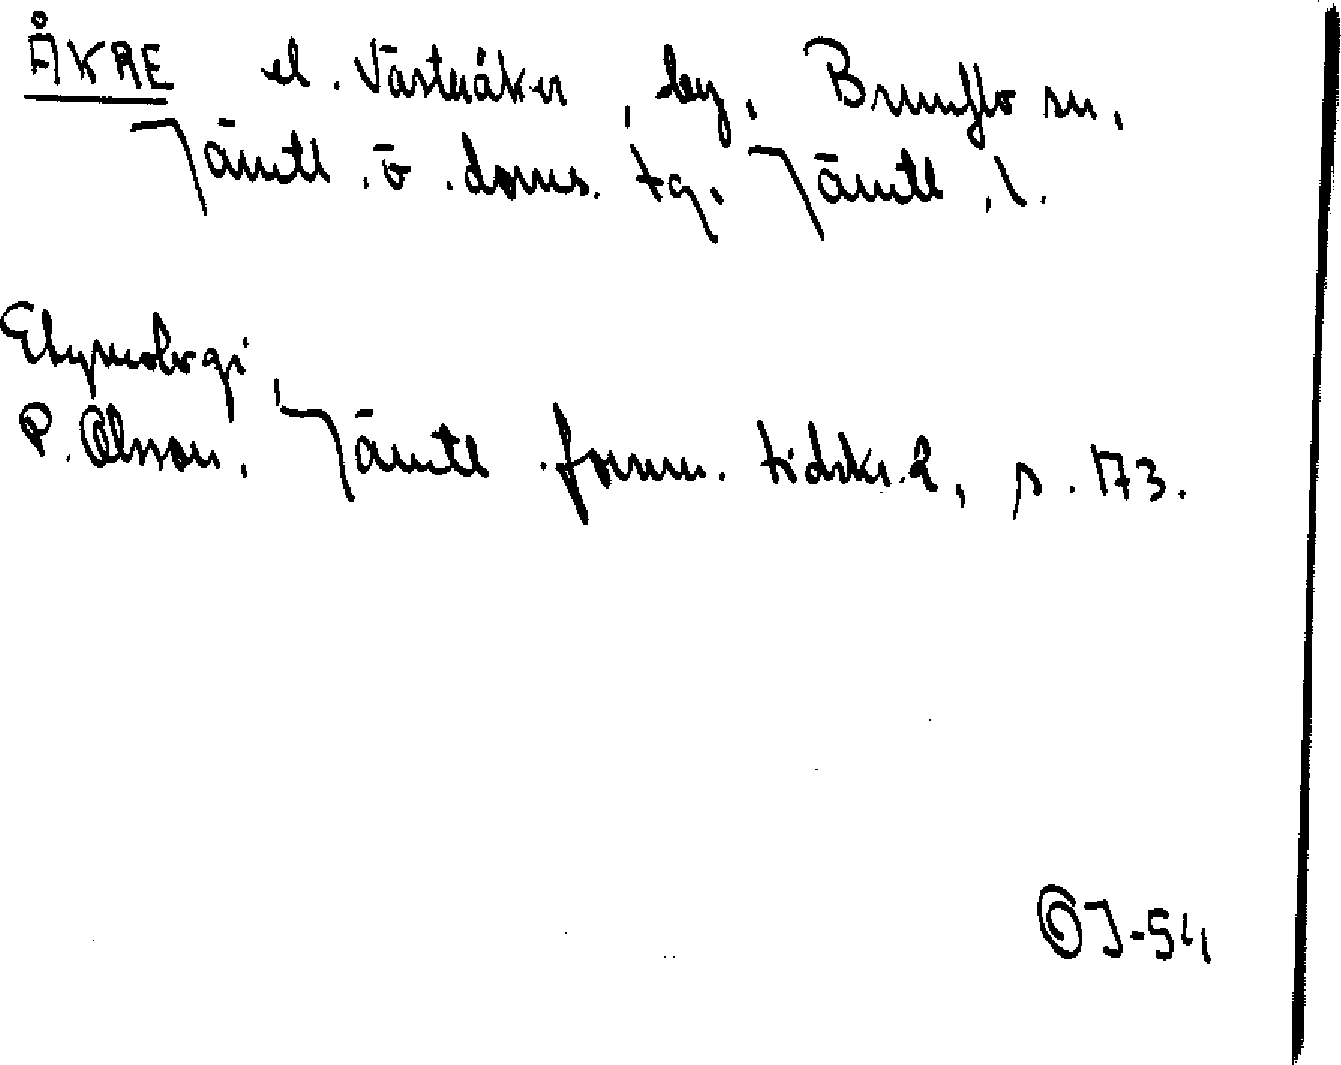 ÅKRE el. Västeråker, by, Brunflo sn,
Jämtl. ö. doms. tg, Jämtl. l.
Etymologi
P. Olsson, Jämtl. fornm. tidskr. 2, s. 173.
OJ-54